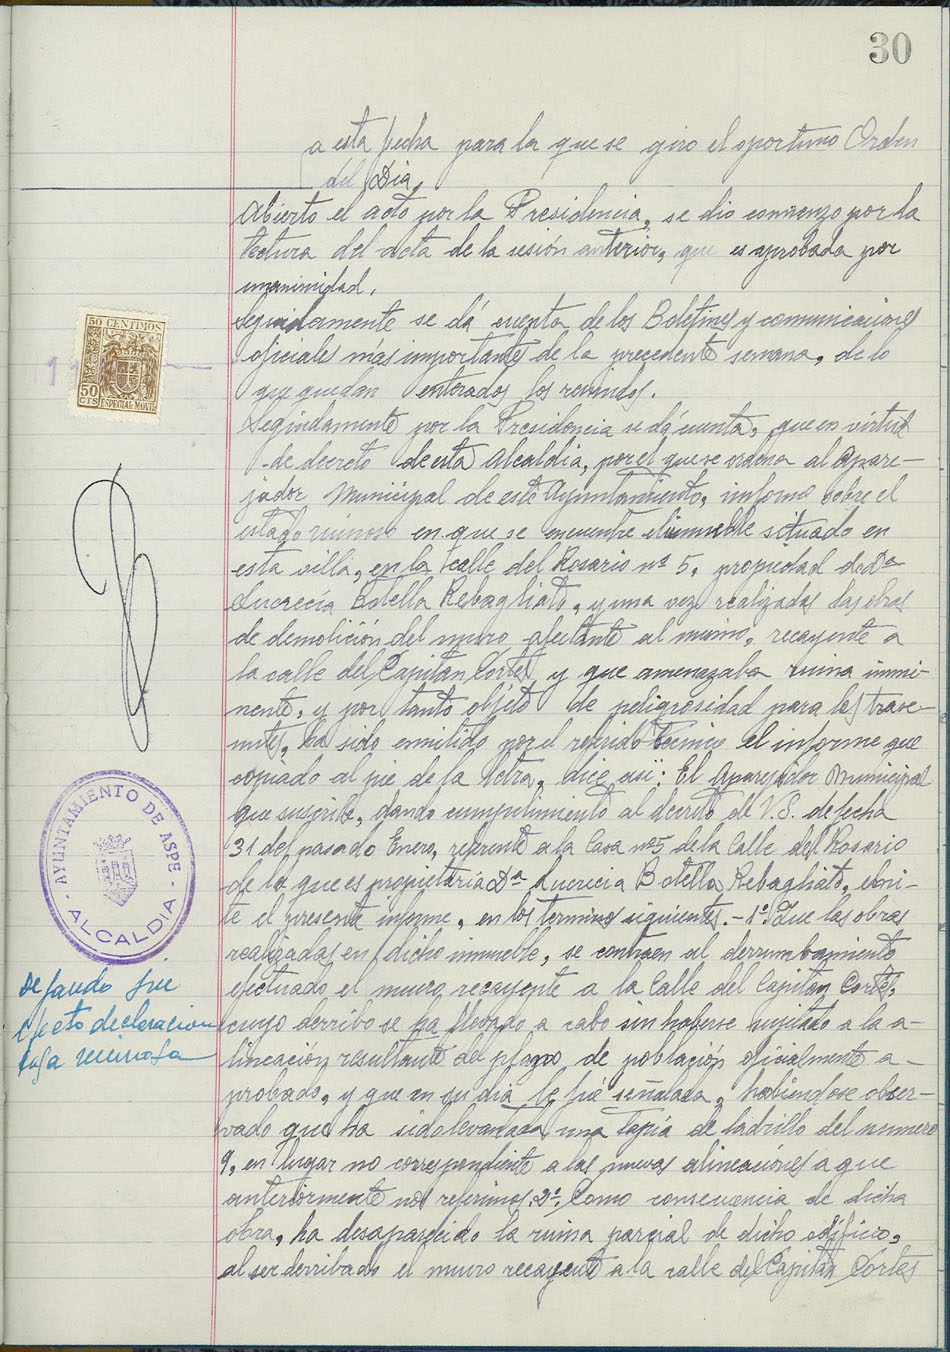 30
a esta fecha para la que se giro el oportuno Orden
del Dia.
Abierto el acto por la Presidencia, se dio comienzo por la
lectura del acta de la sesión anterior, que es aprobada por
unanimidad.
Seguidamente se dá cuenta de los Boletines y comunicaciones
oficiales más importantes de la precedente semana, de lo
que quedan enterados los reunidos.
Seguidamente por la Presidencia se dá cuenta, que en virtud
de decreto de esta Alcaldia, por el que se ordena al Apare-
jador Municipal de este Ayuntamiento, informe sobre el
estado ruinoso en que se encuentre el inmueble situado en
esta villa, en la calle del Rosario nº 5, propiedad de Dª
Lucrecia Botella Rebagliato, y una vez realizadas las obras
de demolición del muro afectante al mismo, recayente a
la calle del Capitan Cortes, y que amenazaba ruina inmi-
nente, y por tanto objeto de peligrosidad para los trase-
untes, ha sido emitido por el referido tecnico el informe que
copiado al pie de la letra, dice asi: El Aparejador Municipal
que suscribe, dando cumplimiento al decreto de V.S. de fecha
31 del pasado Enero, referente a la Casa nº 5 de la Calle del Rosario
de la que es propietaria Dª Lucrecia Botella Rebagliato, emi-
te el presente informe, en los terminos siguientes.- 1º. Que las obras
realizadas en dicho inmueble, se contraen al derrumbamiento
efectuado el muro recayente a la Calle del Capitan Cortes,
cuyo derribo se ha llevado a cabo sin haberse sujetado a la a-
lineación resultante del plano de población oficialmente a-
probado, y que en su dia le fué señalada, habiendose obser-
vado que ha sido levantada una tapia de ladrillo del numero
9, en lugar no correspondiente a las nuevas alineaciones a que
anteriormente nos referimos. 2º. Como consecuencia de dicha
obra, ha desaparecido la ruina parcial de dicho edificio,
al ser derribado el muro recayente a la calle del Capitan Cortes
50 CENTIMOS
50
CTS
ESPECIAL MOVIL
AYUNTAMIENTO DE ASPE
ALCALDIA
Dejando sin
efecto declaracion
casa ruinosa